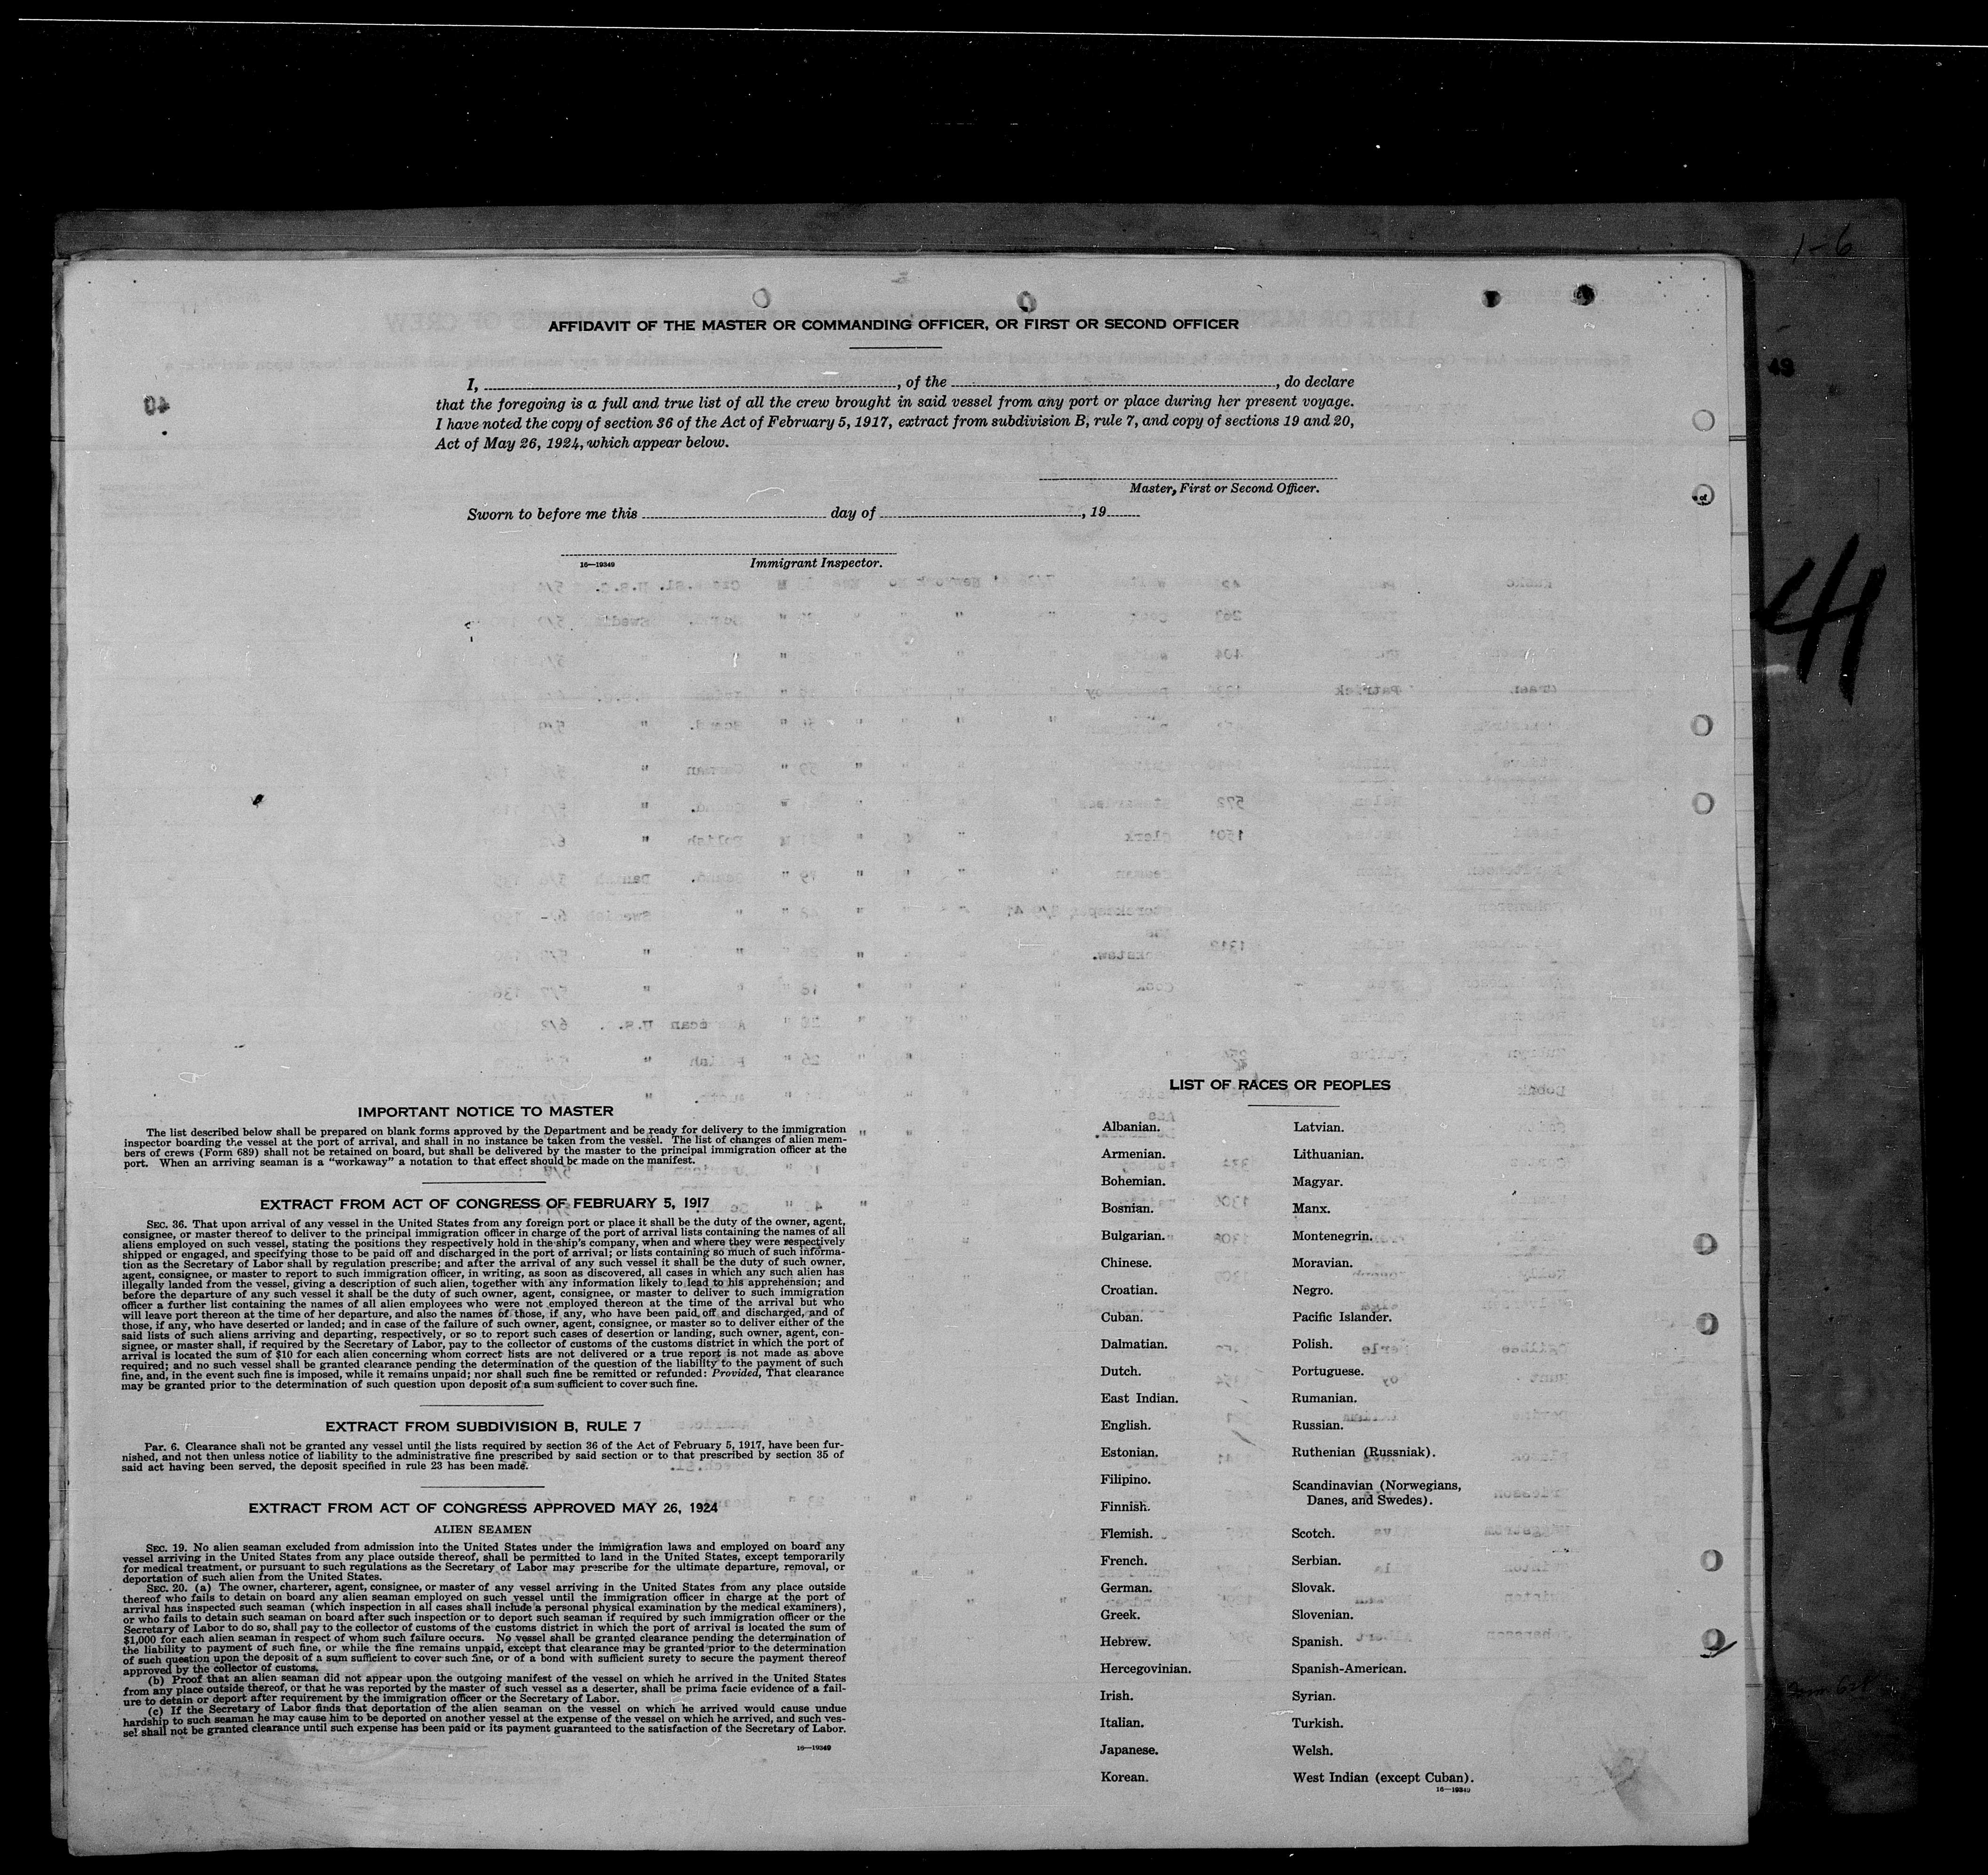 1-6
AFFIDAVIT OF THE MASTER OR COMMANDING OFFICER, OR FIRST OR SECOND OFFICER
49
I, , of the , do declare
that the foregoing is a full and true list of all the crew brought in said vessel from any port or place during her present voyage.
I have noted the copy of section 36 of the Act of February 5, 1917, extract from subdivision B, rule 7, and copy of sections 19 and 20,
Act of May 26, 1924, which appear below.
Master, First or Second Officer.
Sworn to before me this day of , 19
16—19349 Immigrant Inspector.
41
IMPORTANT NOTICE TO MASTER
The list described below shall be prepared on blank forms approved by the Department and be ready for delivery to the immigration
inspector boarding the vessel at the port of arrival, and shall in no instance be taken from the vessel. The list of changes of alien mem-
bers of crews (Form 689) shall not be retained on board, but shall be delivered by the master to the principal immigration officer at the
port. When an arriving seaman is a "workaway" a notation to that effect should be made on the manifest.
EXTRACT FROM ACT OF CONGRESS OF FEBRUARY 5, 1917
SEC. 36. That upon arrival of any vessel in the United States from any foreign port or place it shall be the duty of the owner, agent,
consignee, or master thereof to deliver to the principal immigration officer in charge of the port of arrival lists containing the names of all
aliens employed on such vessel, stating the positions they respectively hold in the ship's company, when and where they were respectively
shipped or engaged, and specifying those to be paid off and discharged in the port of arrival; or lists containing so much of such informa-
tion as the Secretary of Labor shall by regulation prescribe; and after the arrival of any such vessel it shall be the duty of such owner,
agent, consignee, or master to report to such immigration officer, in writing, as soon as discovered, all cases in which any such alien has
illegally landed from the vessel, giving a description of such alien, together with any information likely to lead to his apprehension; and
before the departure of any such vessel it shall be the duty of such owner, agent, consignee, or master to deliver to such immigration
officer a further list containing the names of all alien employees who were not employed thereon at the time of the arrival but who
will leave port thereon at the time of her departure, and also the names of those, if any, who have been paid off and discharged, and of
those, if any, who have deserted or landed; and in case of the failure of such owner, agent, consignee, or master so to deliver either of the
said lists of such aliens arriving and departing, respectively, or so to report such cases of desertion or landing, such owner, agent, con-
signee, or master shall, if required by the Secretary of Labor, pay to the collector of customs of the customs district in which the port of
arrival is located the sum of $10 for each alien concerning whom correct lists are not delivered or a true report is not made as above
required; and no such vessel shall be granted clearance pending the determination of the question of the liability to the payment of such
fine, and, in the event such fine is imposed, while it remains unpaid; nor shall such fine be remitted or refunded: Provided, That clearance
may be granted prior to the determination of such question upon deposit of a sum sufficient to cover such fine.
EXTRACT FROM SUBDIVISION B, RULE 7
Par. 6. Clearance shall not be granted any vessel until the lists required by section 36 of the Act of February 5, 1917, have been fur-
nished, and not then unless notice of liability to the administrative fine prescribed by said section or to that prescribed by section 35 of
said act having been served, the deposit specified in rule 23 has been made.
EXTRACT FROM ACT OF CONGRESS APPROVED MAY 26, 1924
ALIEN SEAMEN
SEC. 19. No alien seaman excluded from admission into the United States under the immigration laws and employed on board any
vessel arriving in the United States from any place outside thereof, shall be permitted to land in the United States, except temporarily
for medical treatment, or pursuant to such regulations as the Secretary of Labor may prescribe for the ultimate departure, removal, or
deportation of such alien from the United States.
SEC. 20. (a) The owner, charterer, agent, consignee, or master of any vessel arriving in the United States from any place outside
thereof who fails to detain on board any alien seaman employed on such vessel until the immigration officer in charge at the port of
arrival has inspected such seaman (which inspection in all cases shall include a personal physical examination by the medical examiners),
or who fails to detain such seaman on board after such inspection or to deport such seaman if required by such immigration officer or the
Secretary of Labor to do so, shall pay to the collector of customs of the customs district in which the port of arrival is located the sum of
$1,000 for each alien seaman in respect of whom such failure occurs. No vessel shall be granted clearance pending the determination of
the liability to payment of such fine, or while the fine remains unpaid, except that clearance may be granted prior to the determination
of such question upon the deposit of a sum sufficient to cover such fine, or of a bond with sufficient surety to secure the payment thereof
approved by the collector of customs.
(b) Proof that an alien seaman did not appear upon the outgoing manifest of the vessel on which he arrived in the United States
from any place outside thereof, or that he was reported by the master of such vessel as a deserter, shall be prima facie evidence of a fail-
ure to detain or deport after requirement by the immigration officer or the Secretary of Labor.
(c) If the Secretary of Labor finds that deportation of the alien seaman on the vessel on which he arrived would cause undue
hardship to such seaman he may cause him to be deported on another vessel at the expense of the vessel on which he arrived, and such ves-
sel shall not be granted clearance until such expense has been paid or its payment guaranteed to the satisfaction of the Secretary of Labor.
16—19349
LIST OF RACES OR PEOPLES
Albanian.
Armenian.
Bohemian.
Bosnian.
Bulgarian.
Chinese.
Croatian.
Cuban.
Dalmatian.
Dutch.
East Indian.
English.
Estonian.
Filipino.
Finnish.
Flemish.
French.
German.
Greek.
Hebrew.
Hercegovinian.
Irish.
Italian.
Japanese.
Korean.
Latvian.
Lithuanian.
Magyar.
Manx.
Montenegrin.
Moravian.
Negro.
Pacific Islander.
Polish.
Portuguese.
Rumanian.
Russian.
Ruthenian (Russniak).
Scandinavian (Norwegians,
Danes, and Swedes).
Scotch.
Serbian.
Slovak.
Slovenian.
Spanish.
Spanish-American.
Syrian.
Turkish.
Welsh.
West Indian (except Cuban).
16—19349